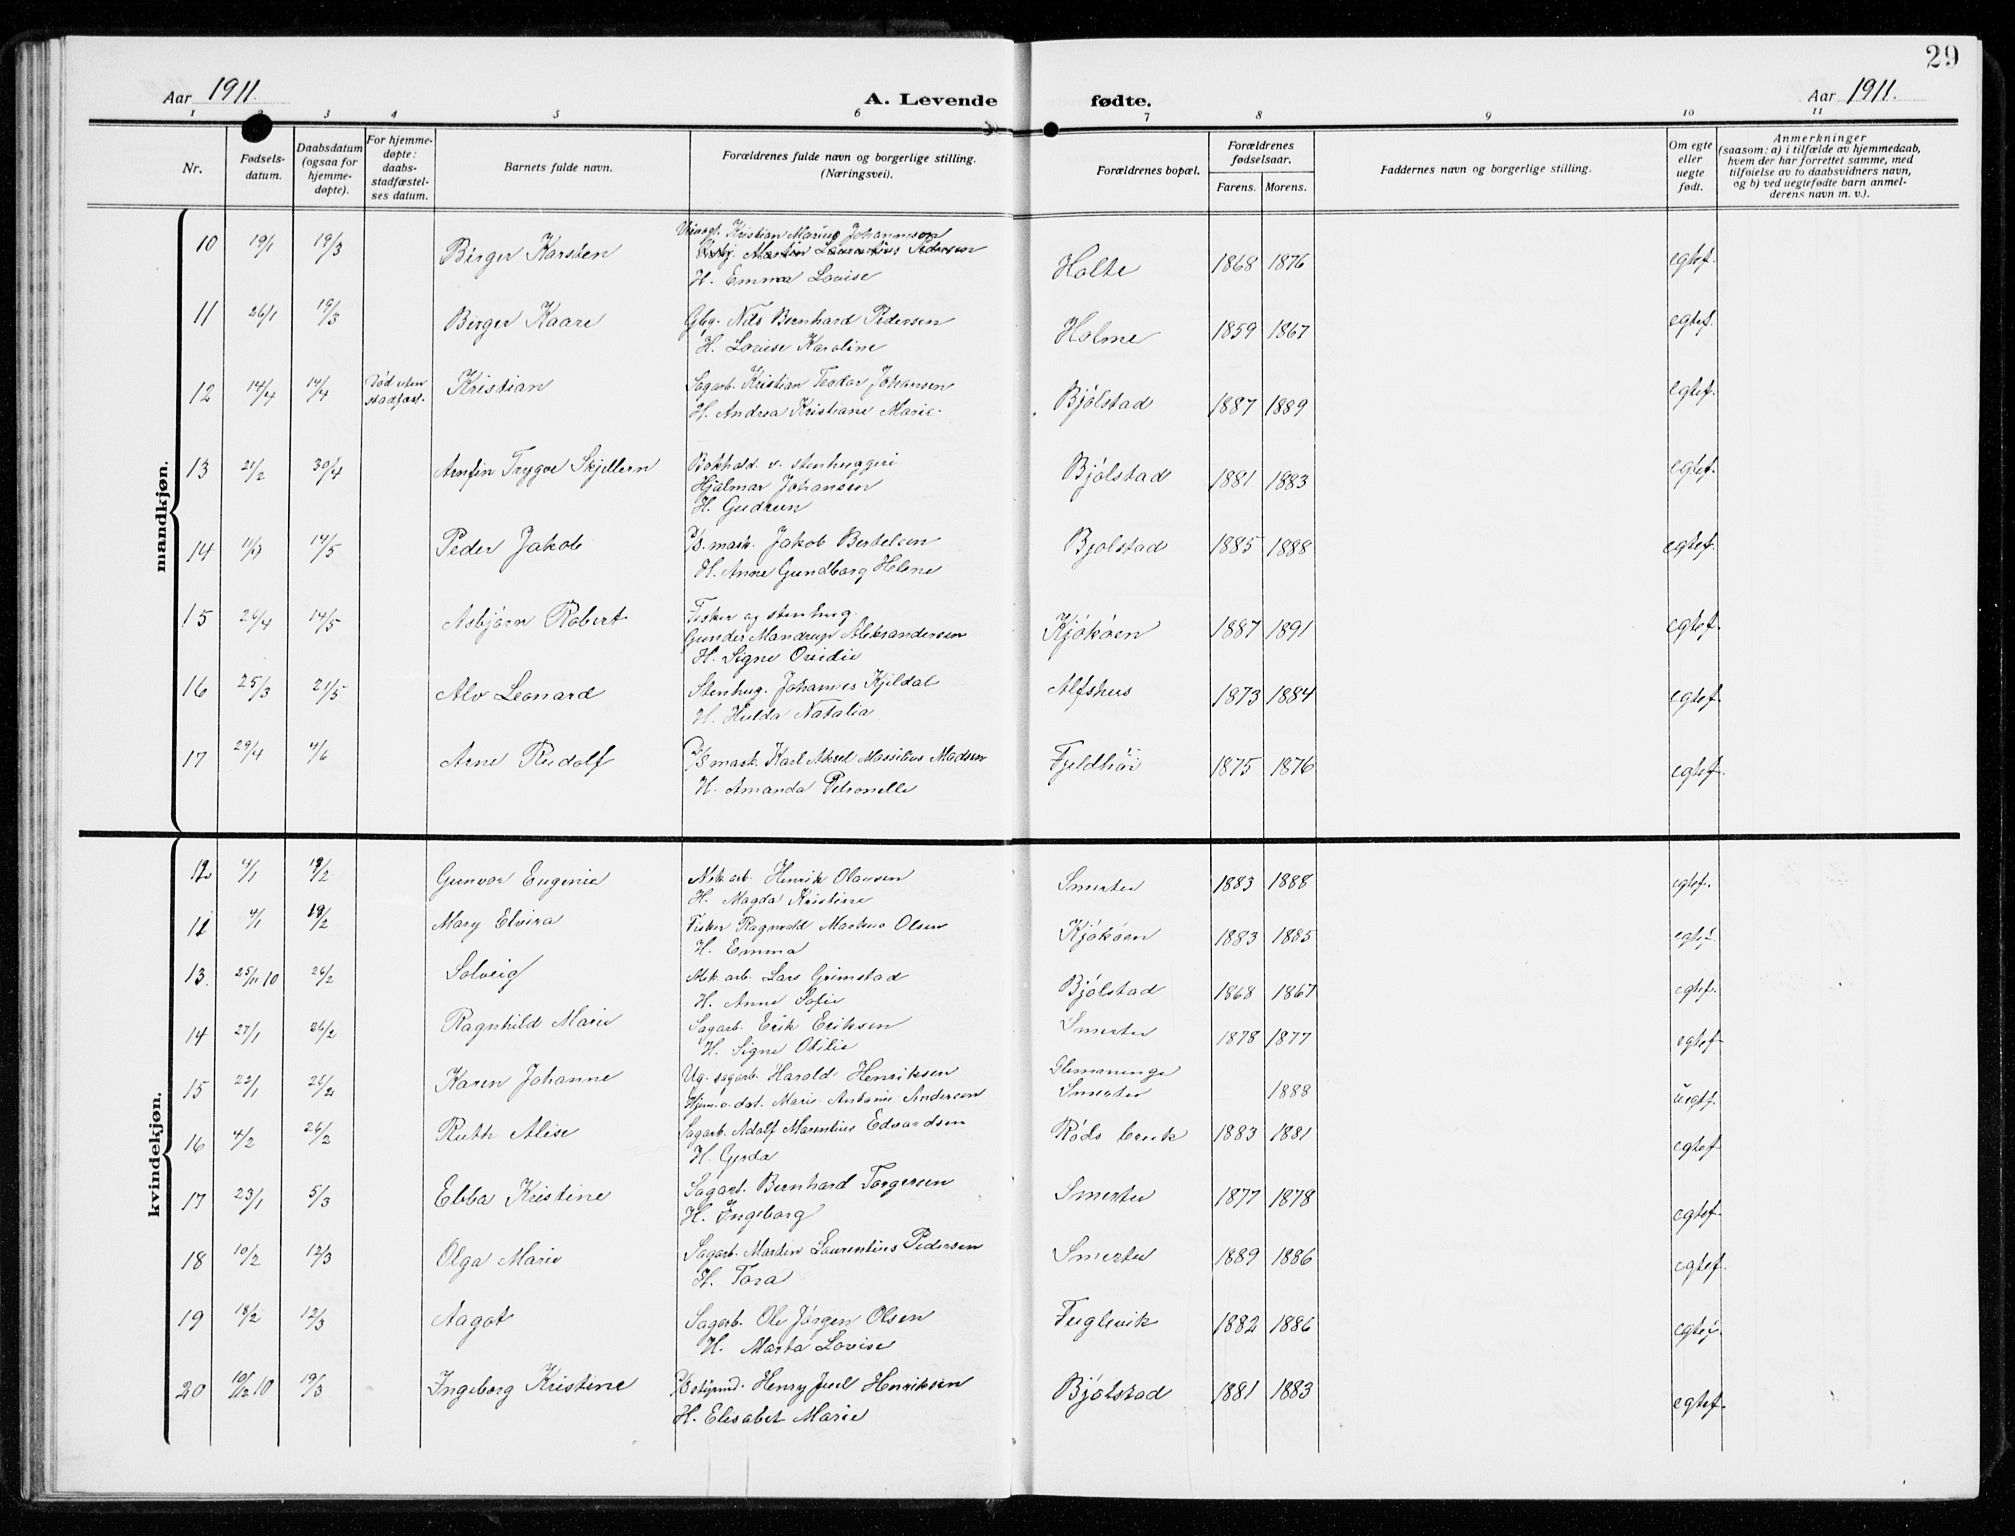 29
Aar 1911. A. Levende fødte. Aar 1911.
1 2 3 4 5 6 7 8 9 10 11
Nr. Fødsels-datum. Daabsdatum (ogsaa for hjemme-døpte). For hjemme-døpte: daabs-stadfæstel-ses datum. Barnets fulde navn. Forældrenes fulde navn og borgerlige stilling. (Næringsvei). Forældrenes bopæl. Forældrenes fødselsaar. Farens. Morens. Faddernes navn og borgerlige stilling. Om egte eller uegte født. Anmerkninger (saasom: a) i tilfælde av hjemmedaab, hvem der har forrettet samme, med tilføielse av to daabsvidners navn, og b) ved uegtefødte barn anmel-derens navn m. v.).
mandkjøn.
Kristian Marius Johannson
10 19/1 19/3 Birger Karsten Martin Laurentius Pedersen Holte 1868 1876 egtef.
H. Emma Lovise
11 26/1 19/3 Birger Kaare Gbg. Nils Bernhard Pedersen Holme 1859 1867 egtef.
H. Lovise Karoline
12 14/4 14/4 Død uten stadfæst. Kristian Sagarb. Kristian Teodor Johansen Bjølstad 1887 1889 egtef.
H. Andrea Kristiane Marie.
13 21/2 30/4 Arnfin Trygve Skjellern Bokhold. v. stenhuggeri Bjølstad 1881 1883 egtef.
Hjalmar Johansen
H. Gudrun
14 14/5 Peder Jakob D/S mask. Jakob Bertelsen Bjølstad 1885 1888 egtef.
H. Anne Gundborg Helene
15 26/4 14/5 Asbjørn Robert Fisker og stenhug. Kjøkøen 1887 1891 egtef.
Gunder Mandrup Aleksandersen
H. Signe Ovidie
16 25/3 21/5 Alv Leonard Stenhug. Johannes Kjeldal Alfshus 1873 1884 egtef.
H. Hulda Natalia
17 29/4 4/6 Arne Rudolf D/S mask. Karl Aksel Massilius Madsen Fjeldhøi 1875 1876 egtef.
H. Amanda Petronelle
kvindekjøn.
12 4/1 19/2 Gunvor Eugenie Mek. arb. Henrik Olausen Smertu 1883 1888 egtef.
H. Magda Kristine
11 4/1 19/2 Mary Elvira Fisker Ragnvald Markus Olsen Kjøkøen 1883 1885 egtef.
H. Emma
13. 25/11 10 26/2 Solveig Mek. arb. Lars Grimstad Bjølstad 1868 1867 egtef.
H. Anne Sofie
14 27/1 26/2 Ragnhild Marie Sagarb. Erik Eriksen Smertu 1878 1877 egtef
H. Signe Otilie
15 22/1 26/2 Karen Johanne Ug. sagarb. Harald Henriksen Glemminge 1888 uegtf.
Hjem. v. dat. Marie Antonie Andersen Smertu
16 4/2 26/2 Ruth Alise Sagarb. Adolf Marentius Edvardsen Røds bruk 1883 1881 egtef
H. Gerda
17 23/1 5/3 Ebba Kristine Sagarb. Bernhard Torgersen Smertu 1877 1878 egtef.
H. Ingeborg
18 10/2 12/3 Olga Marie Sagarb. Martin Laurentius Pedersen Smertu 1889 1886 egtef.
H. Tora
19 18/2 12/3 Aagot Sagarb. Ole Jørgen Olsen Fuglevik 1882 1886 egtef.
H. Marta Lovise
20 10/12 10 19/3 Ingeborg Kristine Henry Juel Henriksen Bjølstad 1881 1883 egtef.
H. Elisabet Marie